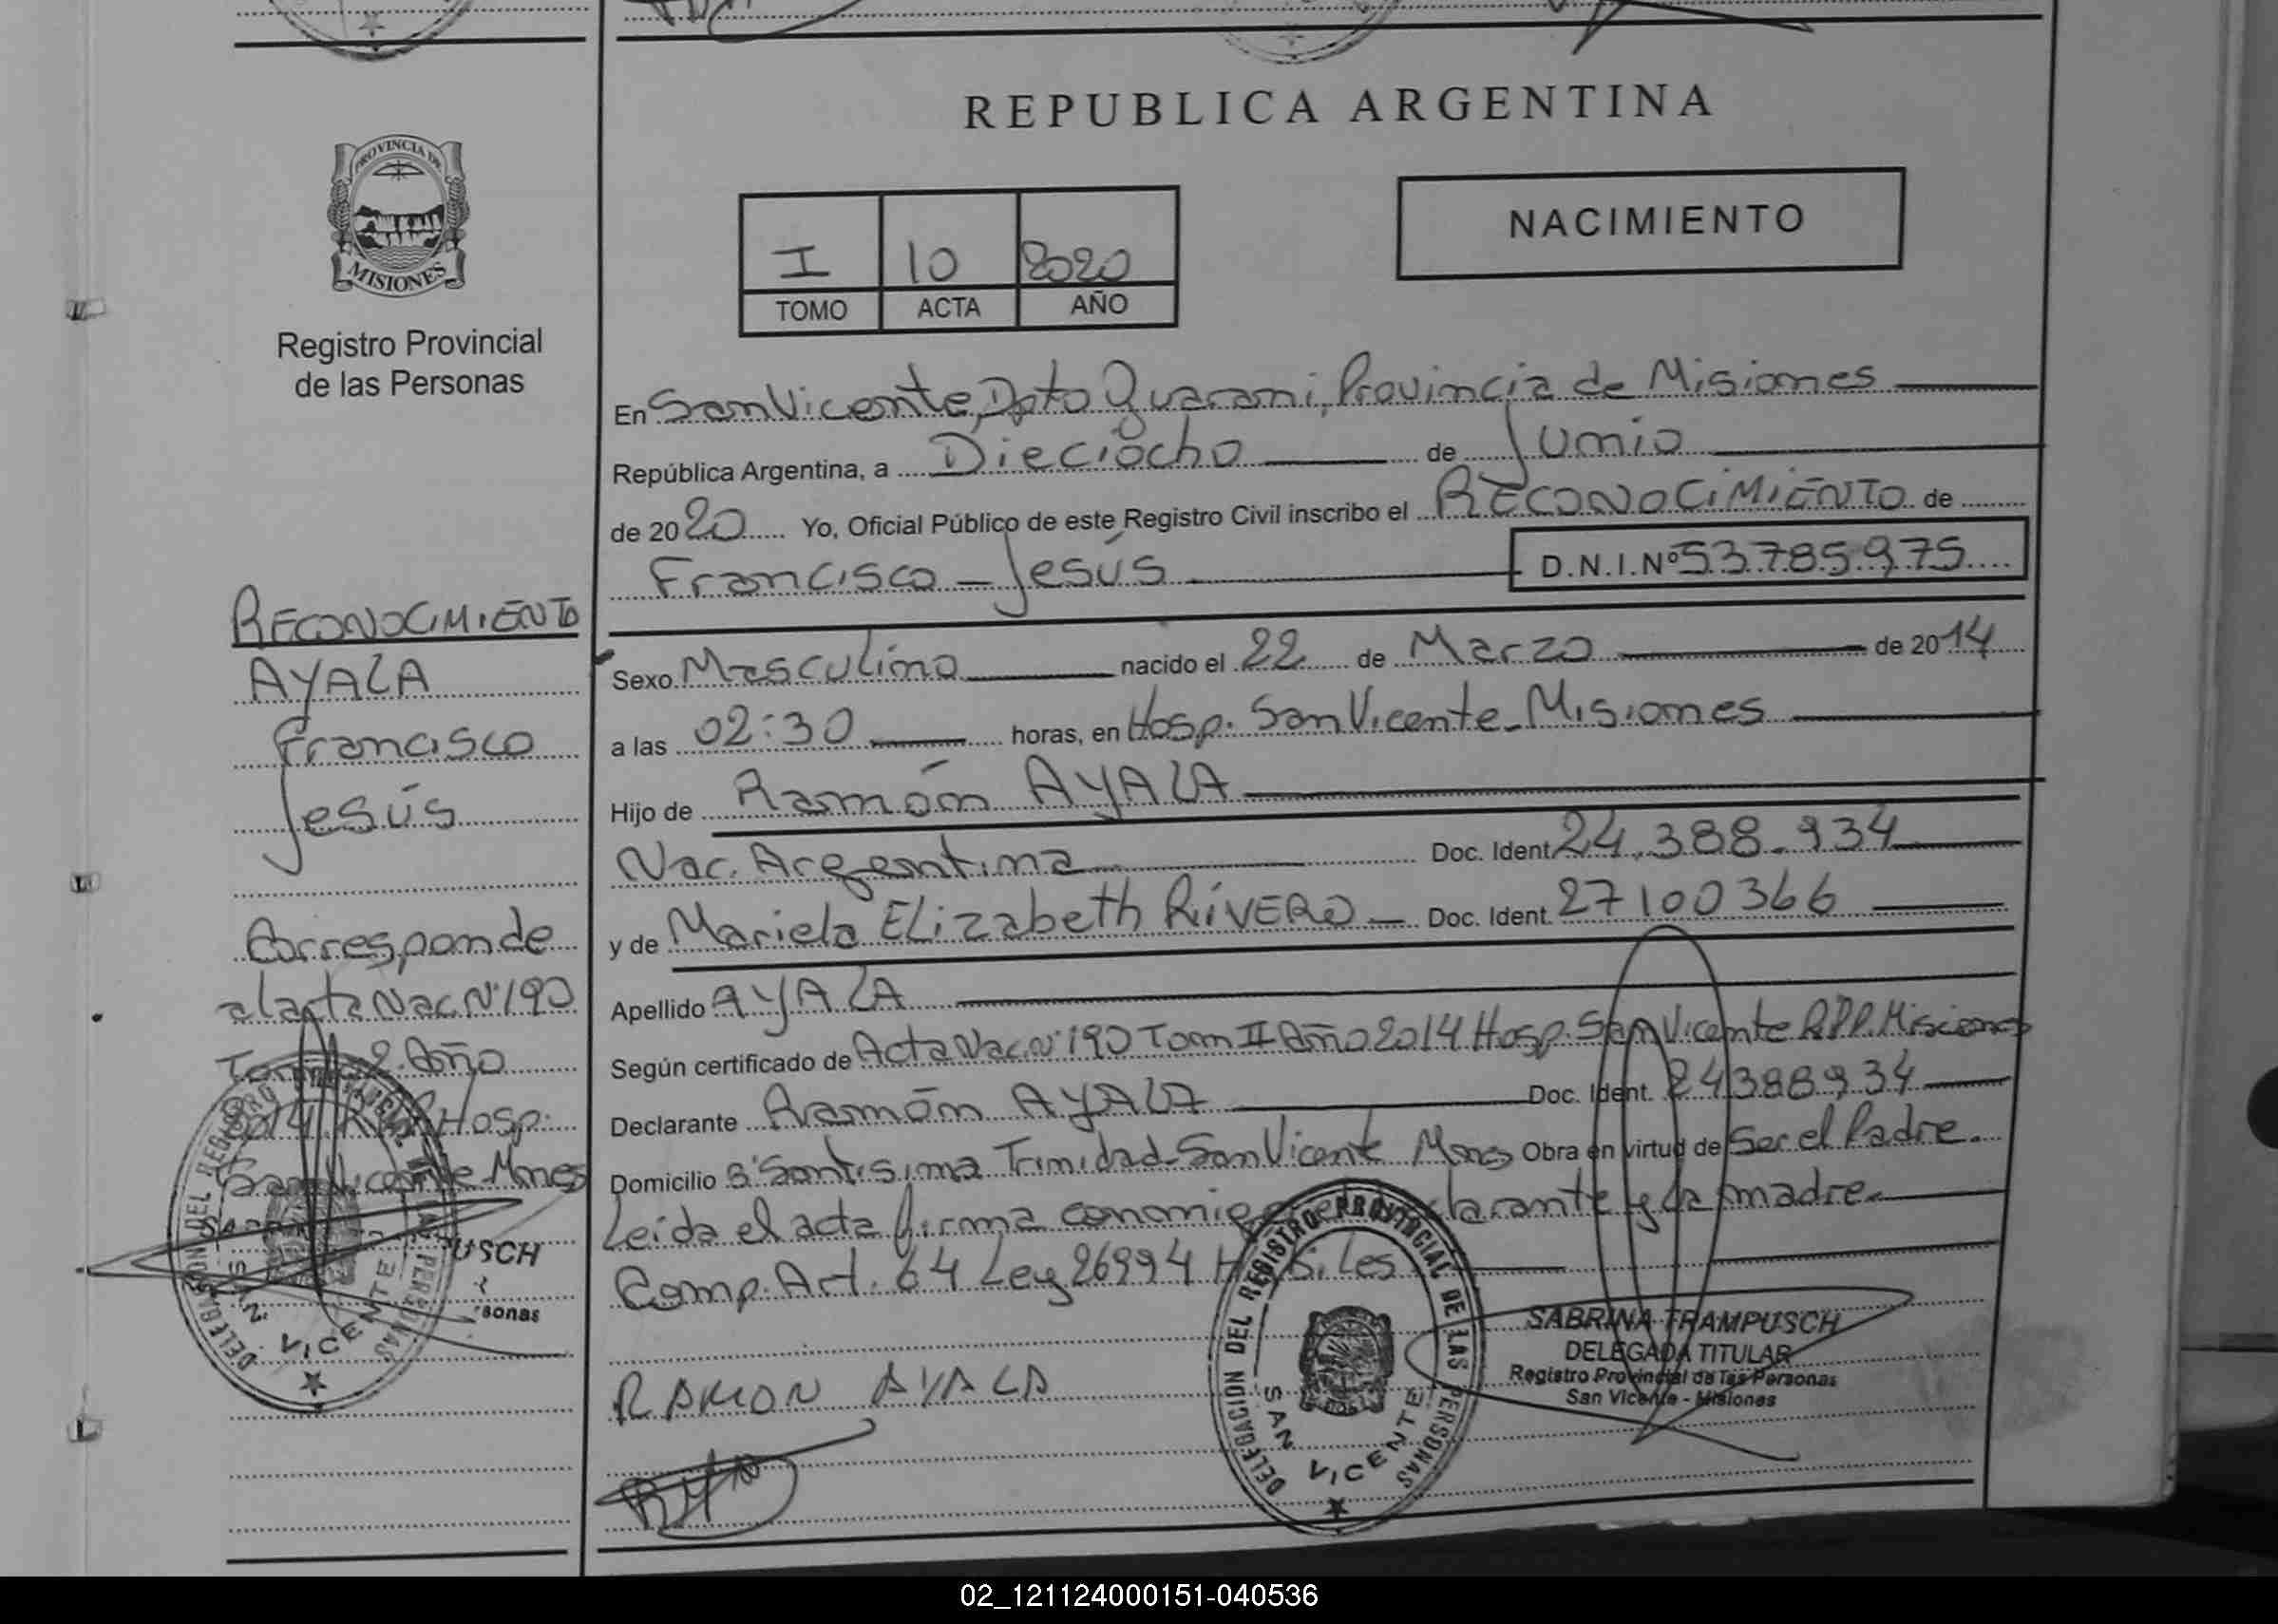 REPUBLICA ARGENTINA
PROVINCIA DE
MISIONES
Registro Provincial
de las Personas
NACIMIENTO
I 10 2020
TOMO ACTA AÑO
En San Vicente, Dpto Guaraní, Provincia de Misiones
República Argentina, a Dieciocho de Junio
de 2020 Yo, Oficial Público de este Registro Civil inscribo el RECONOCIMIENTO de
Francisco Jesús D.N.I.Nº 53.785.975
Sexo Masculino nacido el 22 de Marzo de 2014
a las 02:30 horas, en Hosp. San Vicente - Misiones
Hijo de Ramón AYALA
Nac. Argentina Doc. Ident. 24.388.934
y de Mariela ELizabeth RiVERO Doc. Ident. 27100366
Apellido AYALA
Según certificado de Acta Nac. Nº 190 Tom II Año 2014 Hosp. San Vicente R.P.P. Misiones
Declarante Ramón AYALA Doc. Ident. 24388934
Domicilio Bº Santisima Trinidad - San Vicente Mnes Obra en virtud de Ser el Padre.
Leida el acta firma conmigo el declarante y la madre.
Comp. Art. 64 Ley 26994
RAMON AYALA
DELEGACION DEL REGISTRO PROVINCIAL DE LAS PERSONAS
SAN VICENTE
SABRINA FRAMPUSCH
DELEGADA TITULAR
Registro Provincial de las Personas
San Vicente - Misiones
RECONOCIMIENTO
AYALA
Francisco
Jesús
Corresponde
al acta Nac. Nº 190
Tomo 2 Año
2014 Hosp.
San Vicente - Mnes
USCH
sonas
DELEGACION DEL REGISTRO
SAN VICENTE
02_121124000151-040536